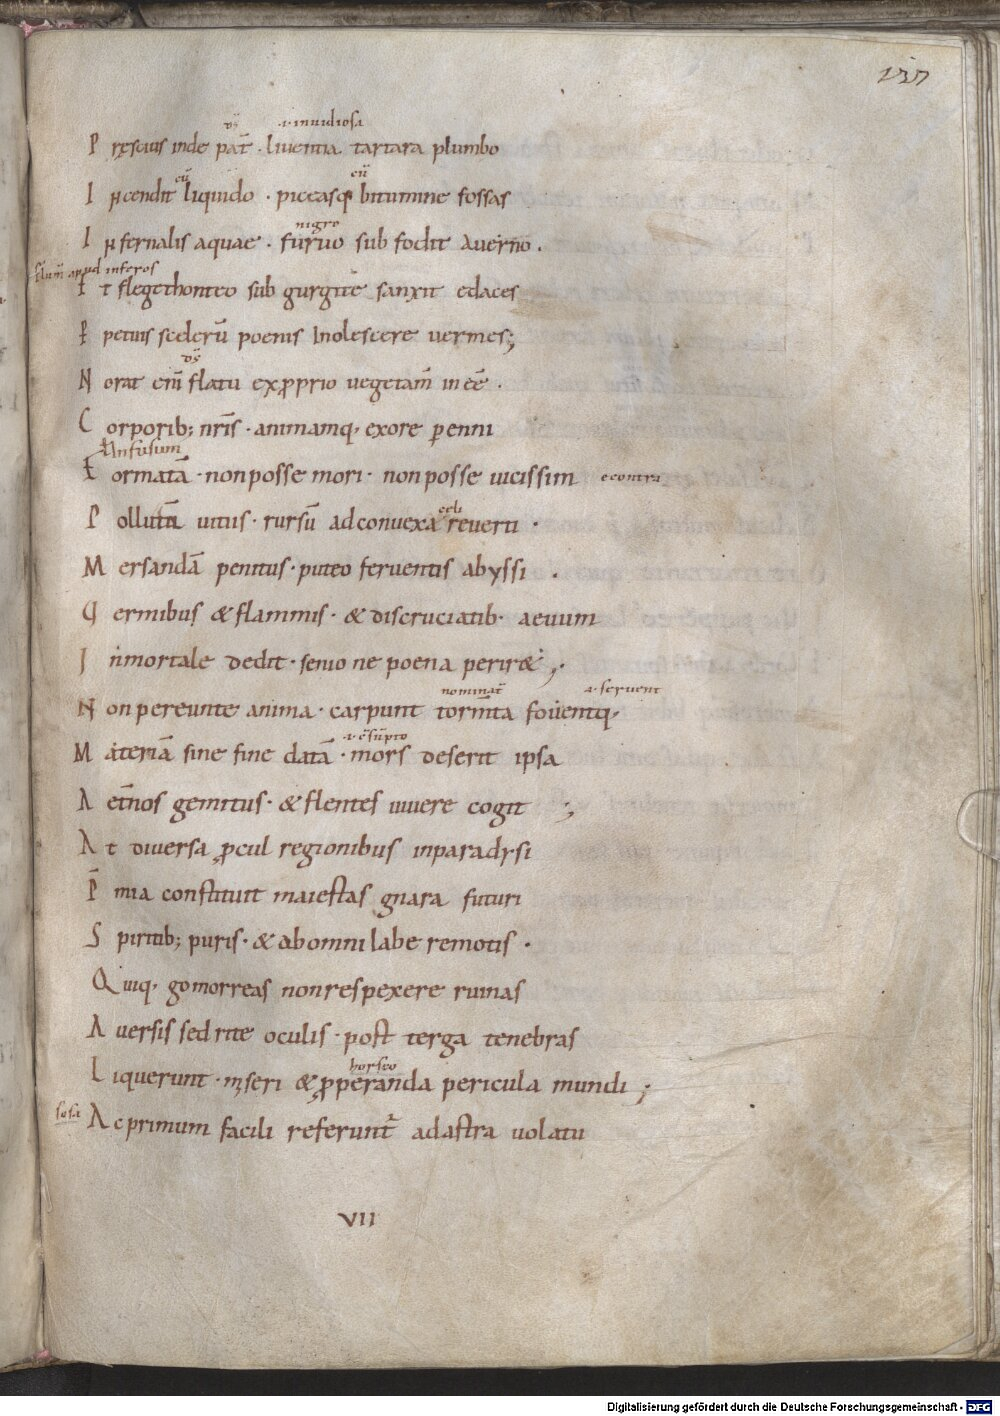 137
dˢ .i. inuidiosa
P ręscius inde pat̄ · liuentia tartara plumbo
cū cū
I ncendit liquido · piceasq; bitumine fossas
nigro
I nfernalis aquae · furuo sub fodit auerno .
flum̄ apud inferos
E t flegethonteo sub gurgite sanxit edaces
P̱ petuis scelerū poenis inolescere uermes;
dˢ
N orat eni̅ flatu ex ꝓprio uegetam̄ inēē .
C orporib; nr̄is · animamq; ex ore ꝑenni
Infusum
F ormatā · non posse mori · non posse uicissim econtra
celi
P ollutā uitiis · rursū ad conuexa reuerti ·
M ersandā penitus · puteo feruentis abyssi .
V ermibus & flammis · & discruciatib· aeuum
I nmortale dedit · senio ne poena perir&;
nominat̄ .i. seruent
N on pereunte anima · carpunt torm̄ta fouentq;
.i. c̄sūpto
M ateriā sine fine datā · mors deserit ipsa
A et̄nos gemitus · & flentes uiuere cogit ;
A t diuersa ꝓcul regionibus in paradysi
P̄ mia constituit maiestas gnara futuri
S piritib; puris · & ab omni labe remotis ·
Q uiq; gomorreas non respexere ruinas
A uersis sed rite oculis · post terga tenebras
L iquerunt · miseri & ꝓperanda pericula mundi ;
A c primum facili referunt̄ ad astra uolatu
VII
Digitalisierung gefördert durch die Deutsche Forschungsgemeinschaft - DFG